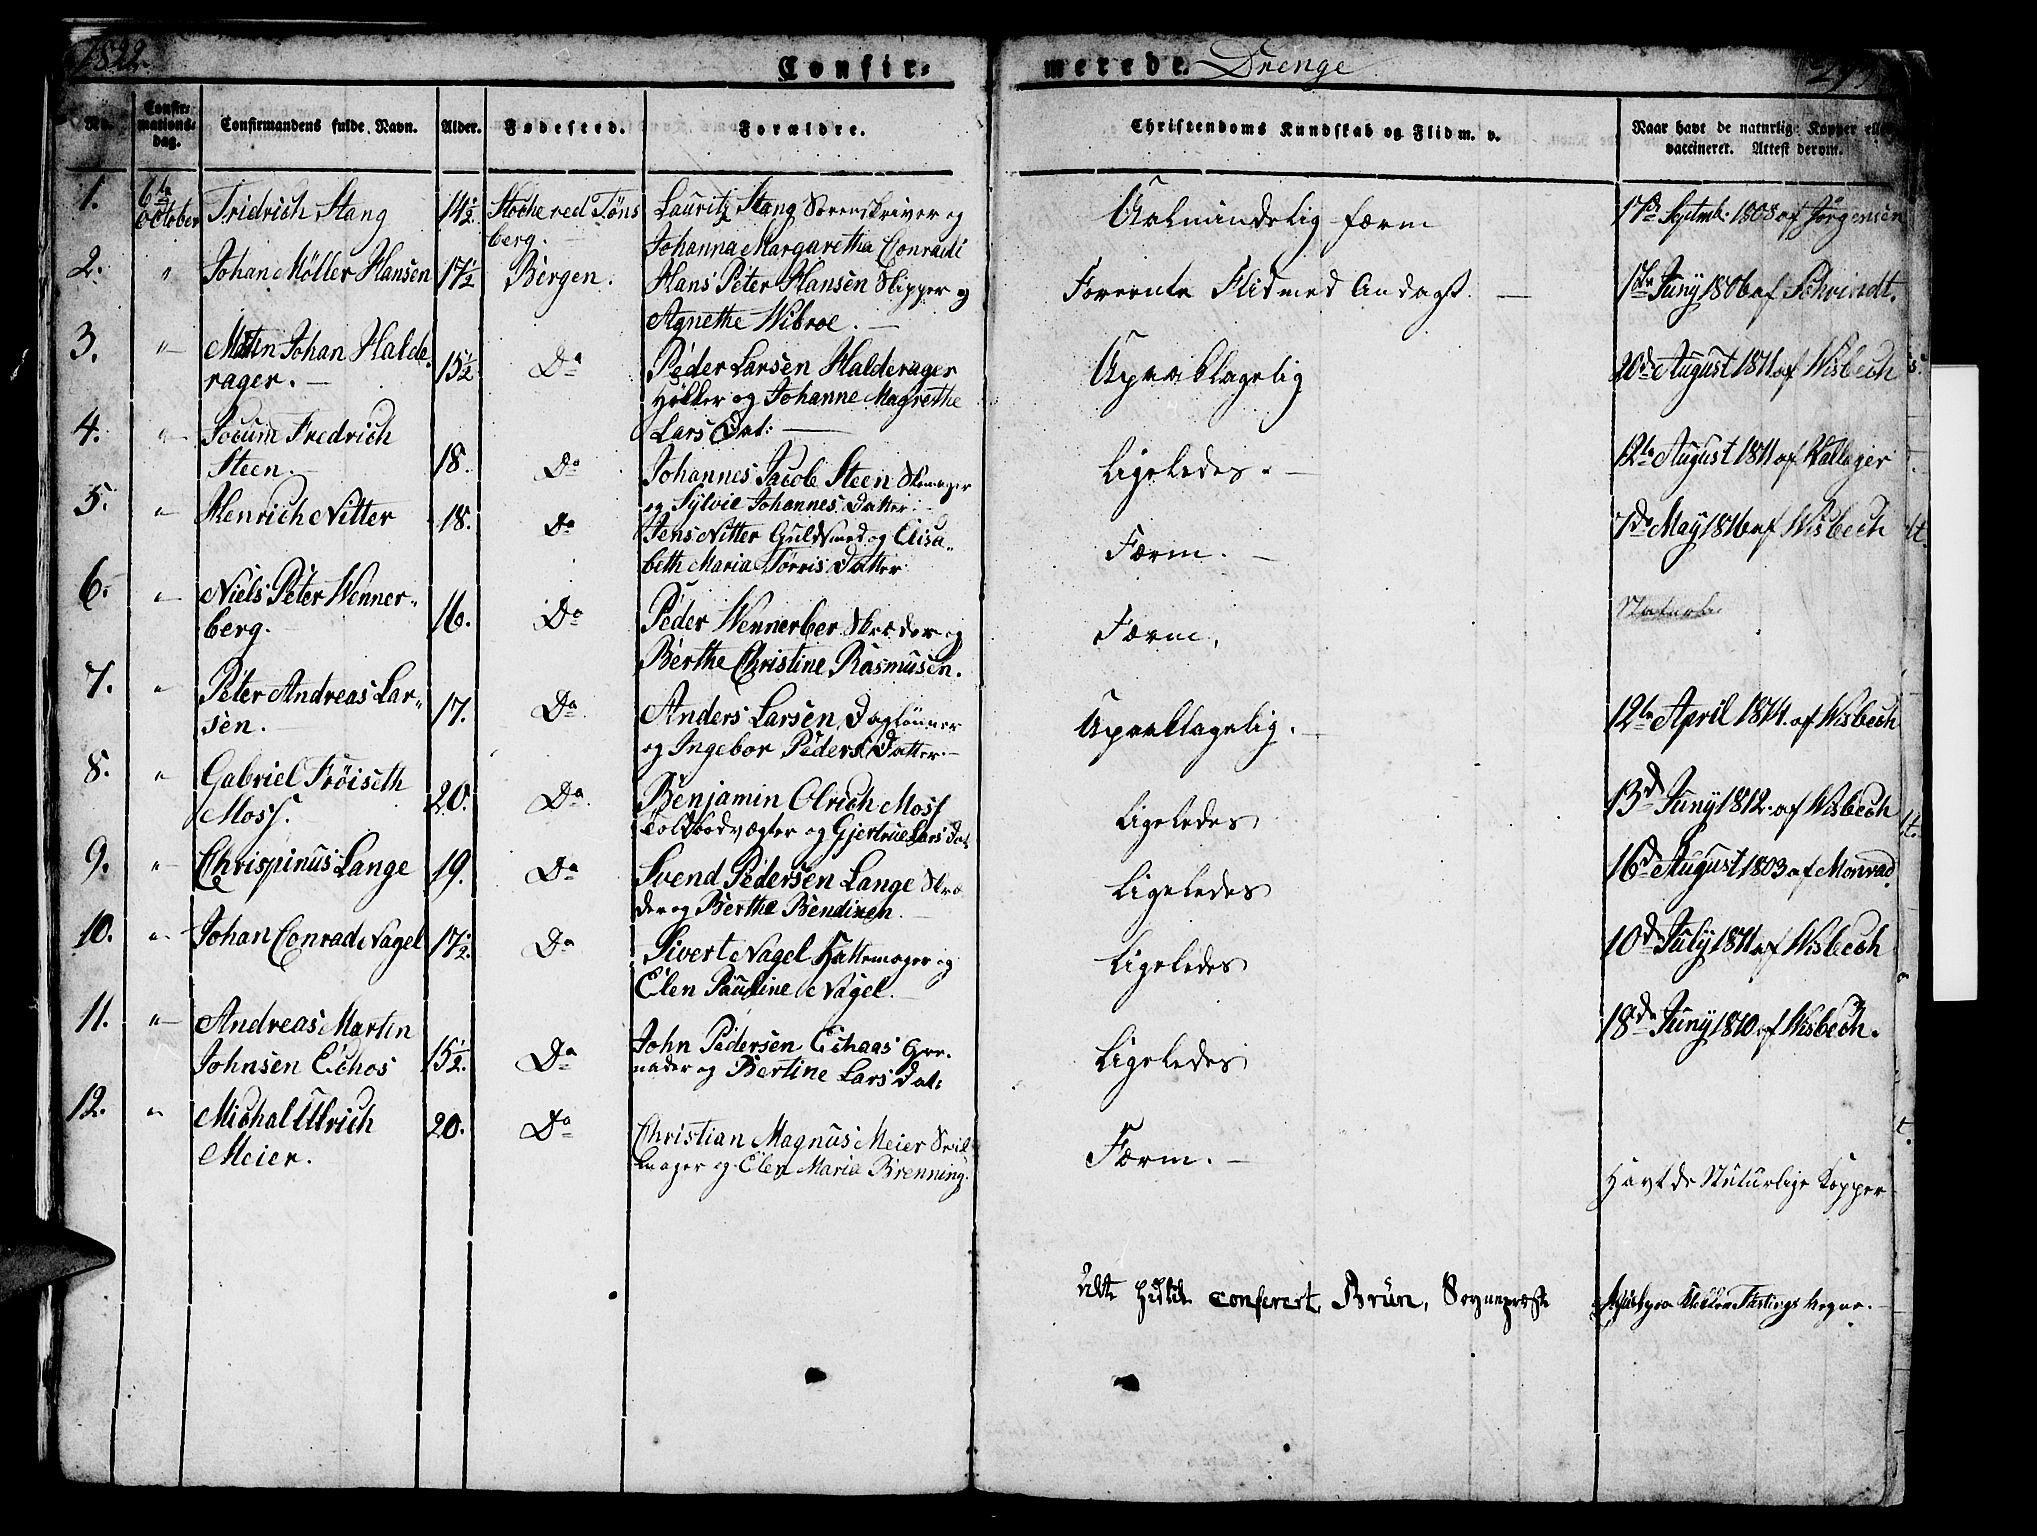 1822.
Confir=
merede Drenge
No.
Confir= mations= dag.
Confirmandens fulde Navn.
Alder.
Fødested.
Forældre.
Christendoms Kundskab og Flid m. v.
Naar havt de naturlig: Kopper eller vaccineret. Attest derom.
1. 6te October Fridrich Stang 14½ Stoche ved Töns berg. Lauritz Stang Sorenskriver og
Johanna Margaretha Conradi
Almindelig færm
17de Septmb: 1808 af Jörgensen
2. " Johan Möller Hansen 17½ Bergen. Hans Peter Hansen Skipper og
Agnethe Wibroe.
Forrente Flid med Andagt.
17de Juny 1806 af Schvindt.
3. " Matin Johan Halde
rager. 15½ Do Peder Larsen Halderager
Höker og Johanne Magrethe
Lars Dat:
Upaaklagelig
20de August 1811 af Wisbech
4. " Jocum Fredrich
Steen. 18. Do Johannes Jacob Steen Skomager
og Sylvie Johannes Datter.
Ligeledes.
12te August 1811 af Kallager
5. " Henrich Nitter 18. Do Jens Nitter Guldsmed og Elisa
beth Maria Törris Datter
Færm.
7de May 1816 af Wisbech
6. " Niels Peter Wenner
berg. 16. Do Peder Wennerber Skræder og
Berthe Christine Rasmusen.
Færm.
7. " Peter Andreas Lar
sen. 17. Do Anders Larsen Daglönner
og Ingebor Peders Datter
Upaaklagelig.
12te April 1814. af Wisbech
8. " Gabriel Fröiseth
Moss. 20. Do Benjamin Olrich Moss
Toldbodvægter og Gjertrue Lars Dat
Ligeledes
13de Juny 1812. af Wisbech
9. " Chrispinus Lange 19. Do Svend Pedersen Lange Skræ
der og Berthe Bendixen.
Ligeledes
16de August 1803 af Monrad
10. " Johan Conrad Nagel 17½. Do Sivert Nagel Hattemager og
Elen Pauline Nagel.
Ligeledes
10de July 1811 af Wisbech
11. " Andreas Martin
Johnsen Echos 15½. Do John Pedersen Echaas Gre
nader og Bertine Lars Dat:
Ligeledes
18de Juny 1810 af Wisbech.
12. " Michal Ulrich
Meier. 20. Do Christian Magnus Meier Seil
mager og Elen Maria Brenning.
Færm.
Havt de Naturlige Kopper
confereret, Brun, Sognepræst